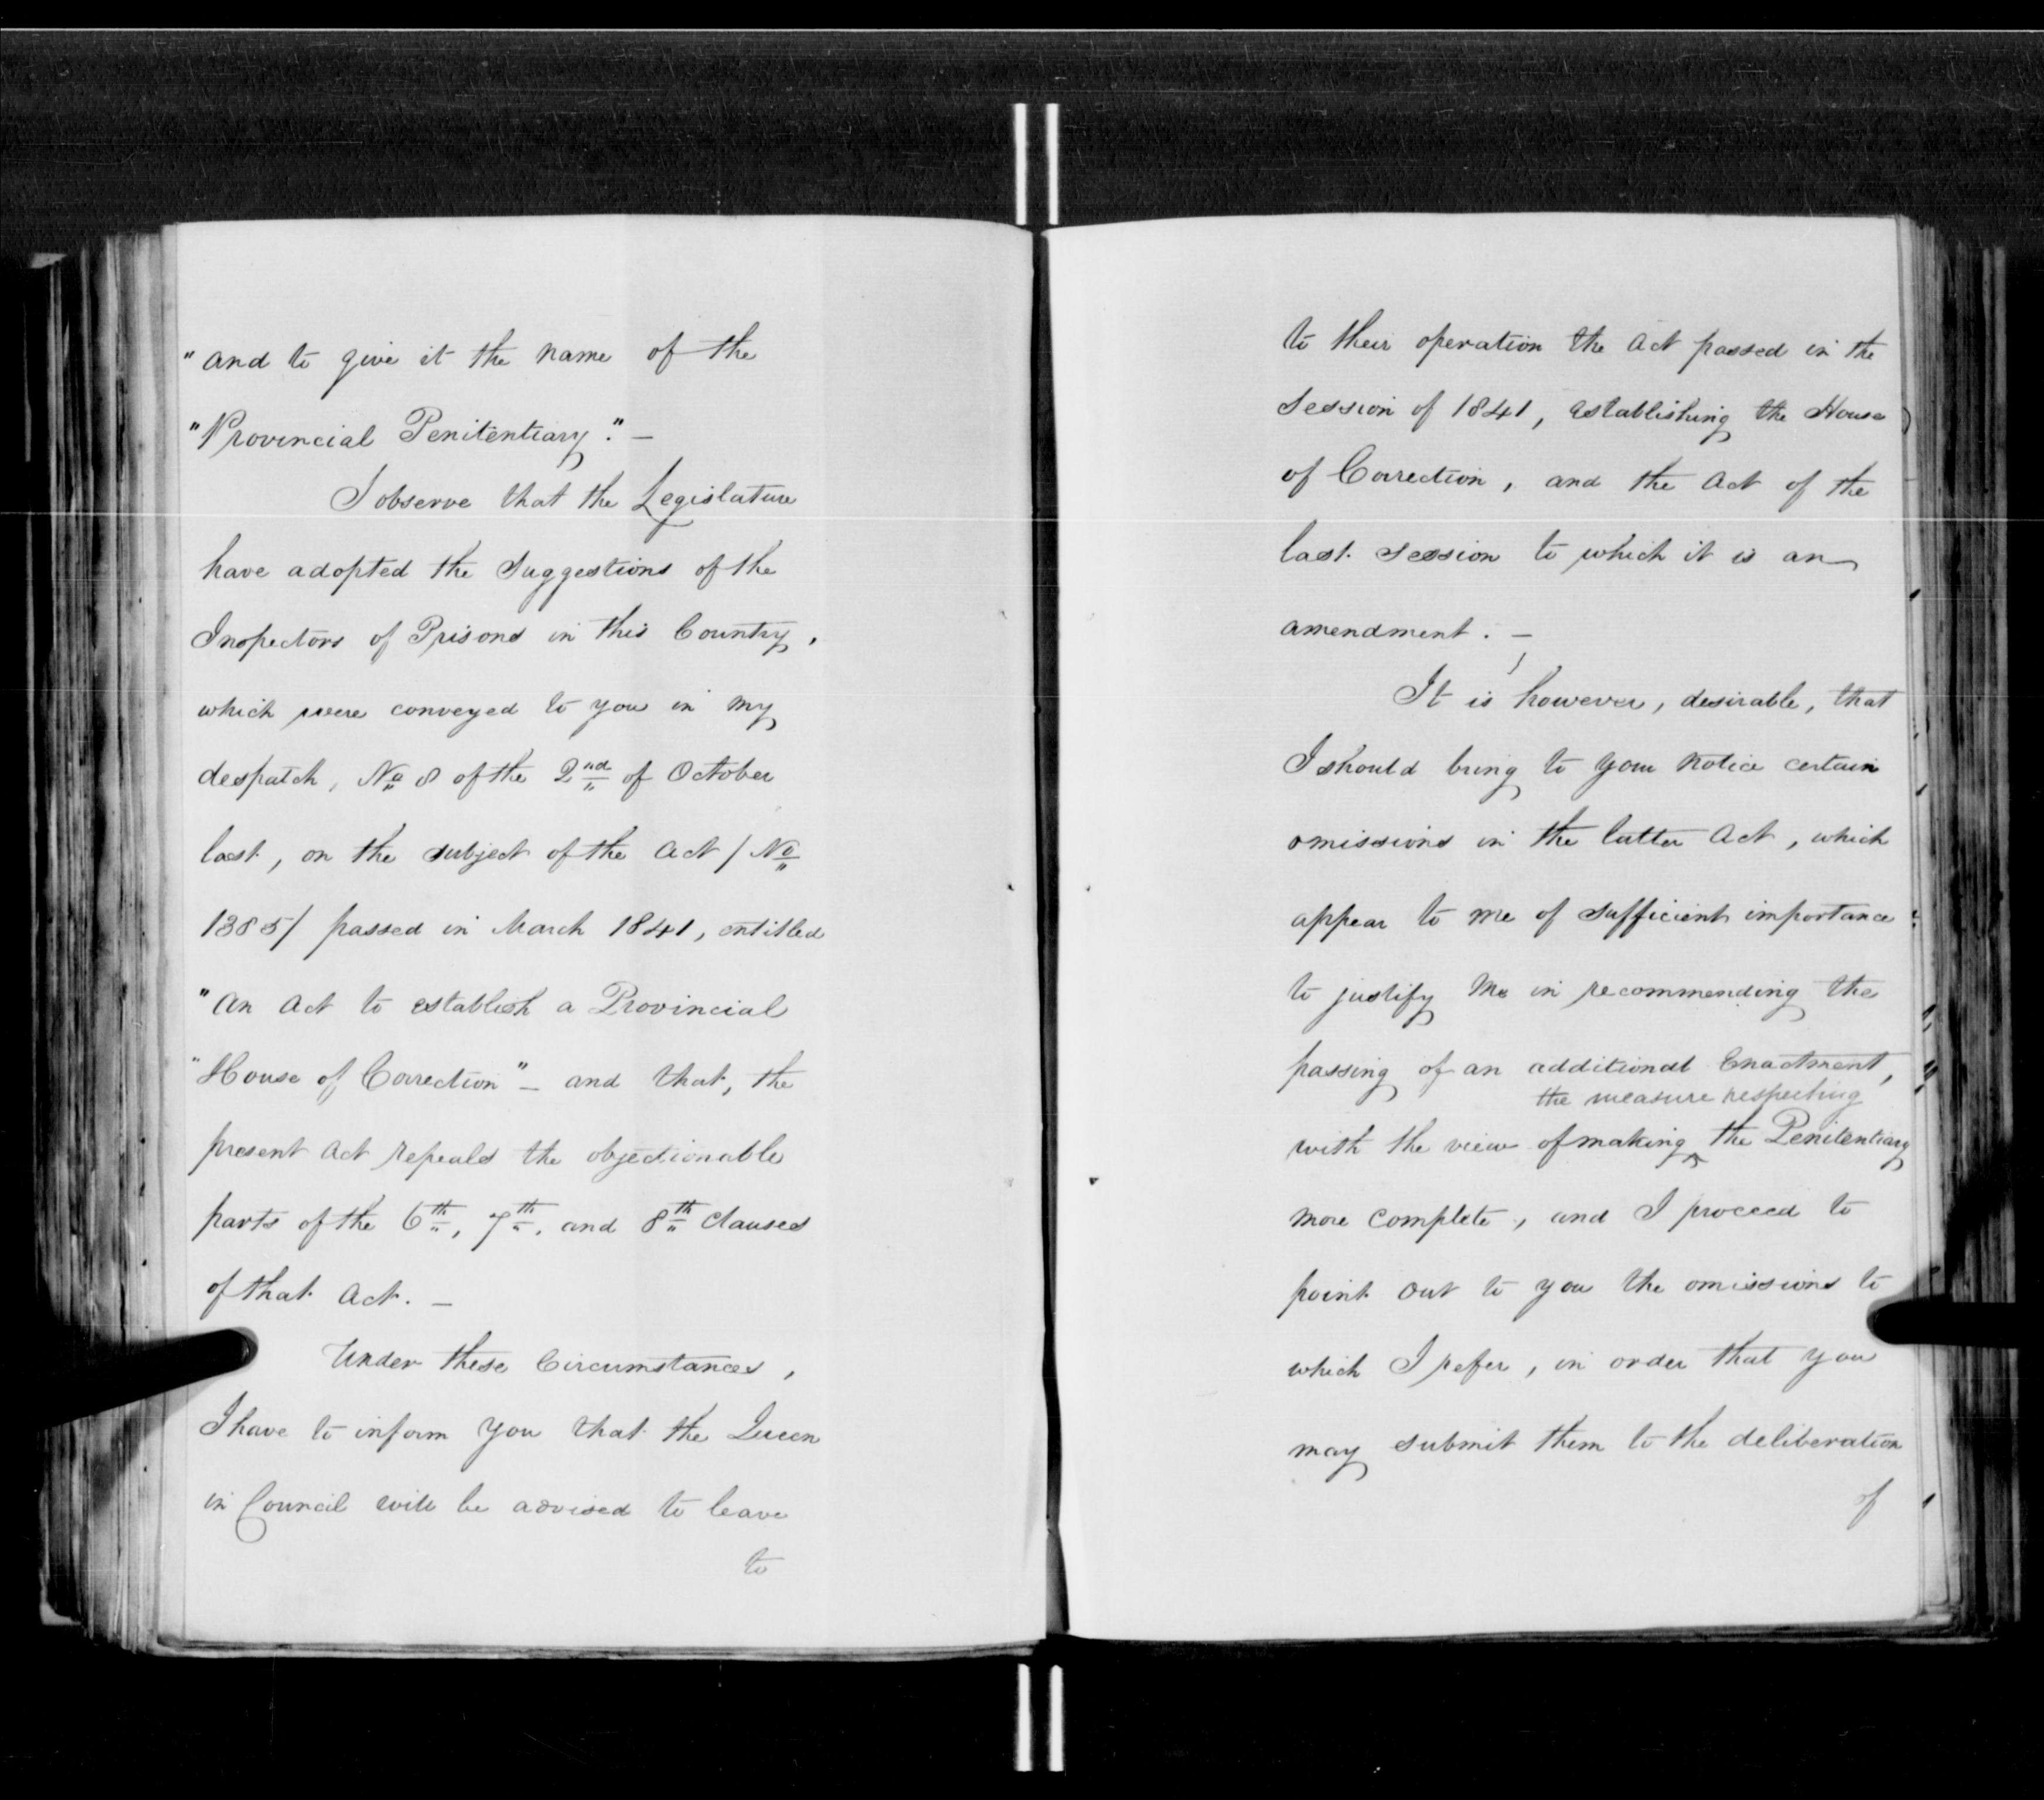 "and to give it the name of the
"Provincial Penitentiary." —
I observe that the Legislature
have adopted the Suggestions of the
Inspectors of Prisons in this Country,
which were conveyed to you in my
despatch, No 8 of the 2nd of October
last, on the subject of the Act / No
1385/ passed in March 1841, entitled
"An Act to establish a Provincial
"House of Correction" — and that, the
present Act repeals the objectionable
parts of the 6th, 7th, and 8th Clauses
of that Act. —
Under these Circumstances,
I have to inform you that the Queen
in Council will be advised to leave
to
to their operation the Act passed in the
Session of 1841, establishing the House
of Correction, and the Act of the
last Session to which it is an
amendment. —
It is however, desirable, that
I should bring to your notice certain
omissions in the latter Act, which
appear to me of sufficient importance
to justify me in recommending the
passing of an additional Enactment,
the measure respecting
with the view of making ^ the Penitentiary
more complete, and I proceed to
point out to you the omissions to
which I refer, in order that you
may submit them to the deliberation
of